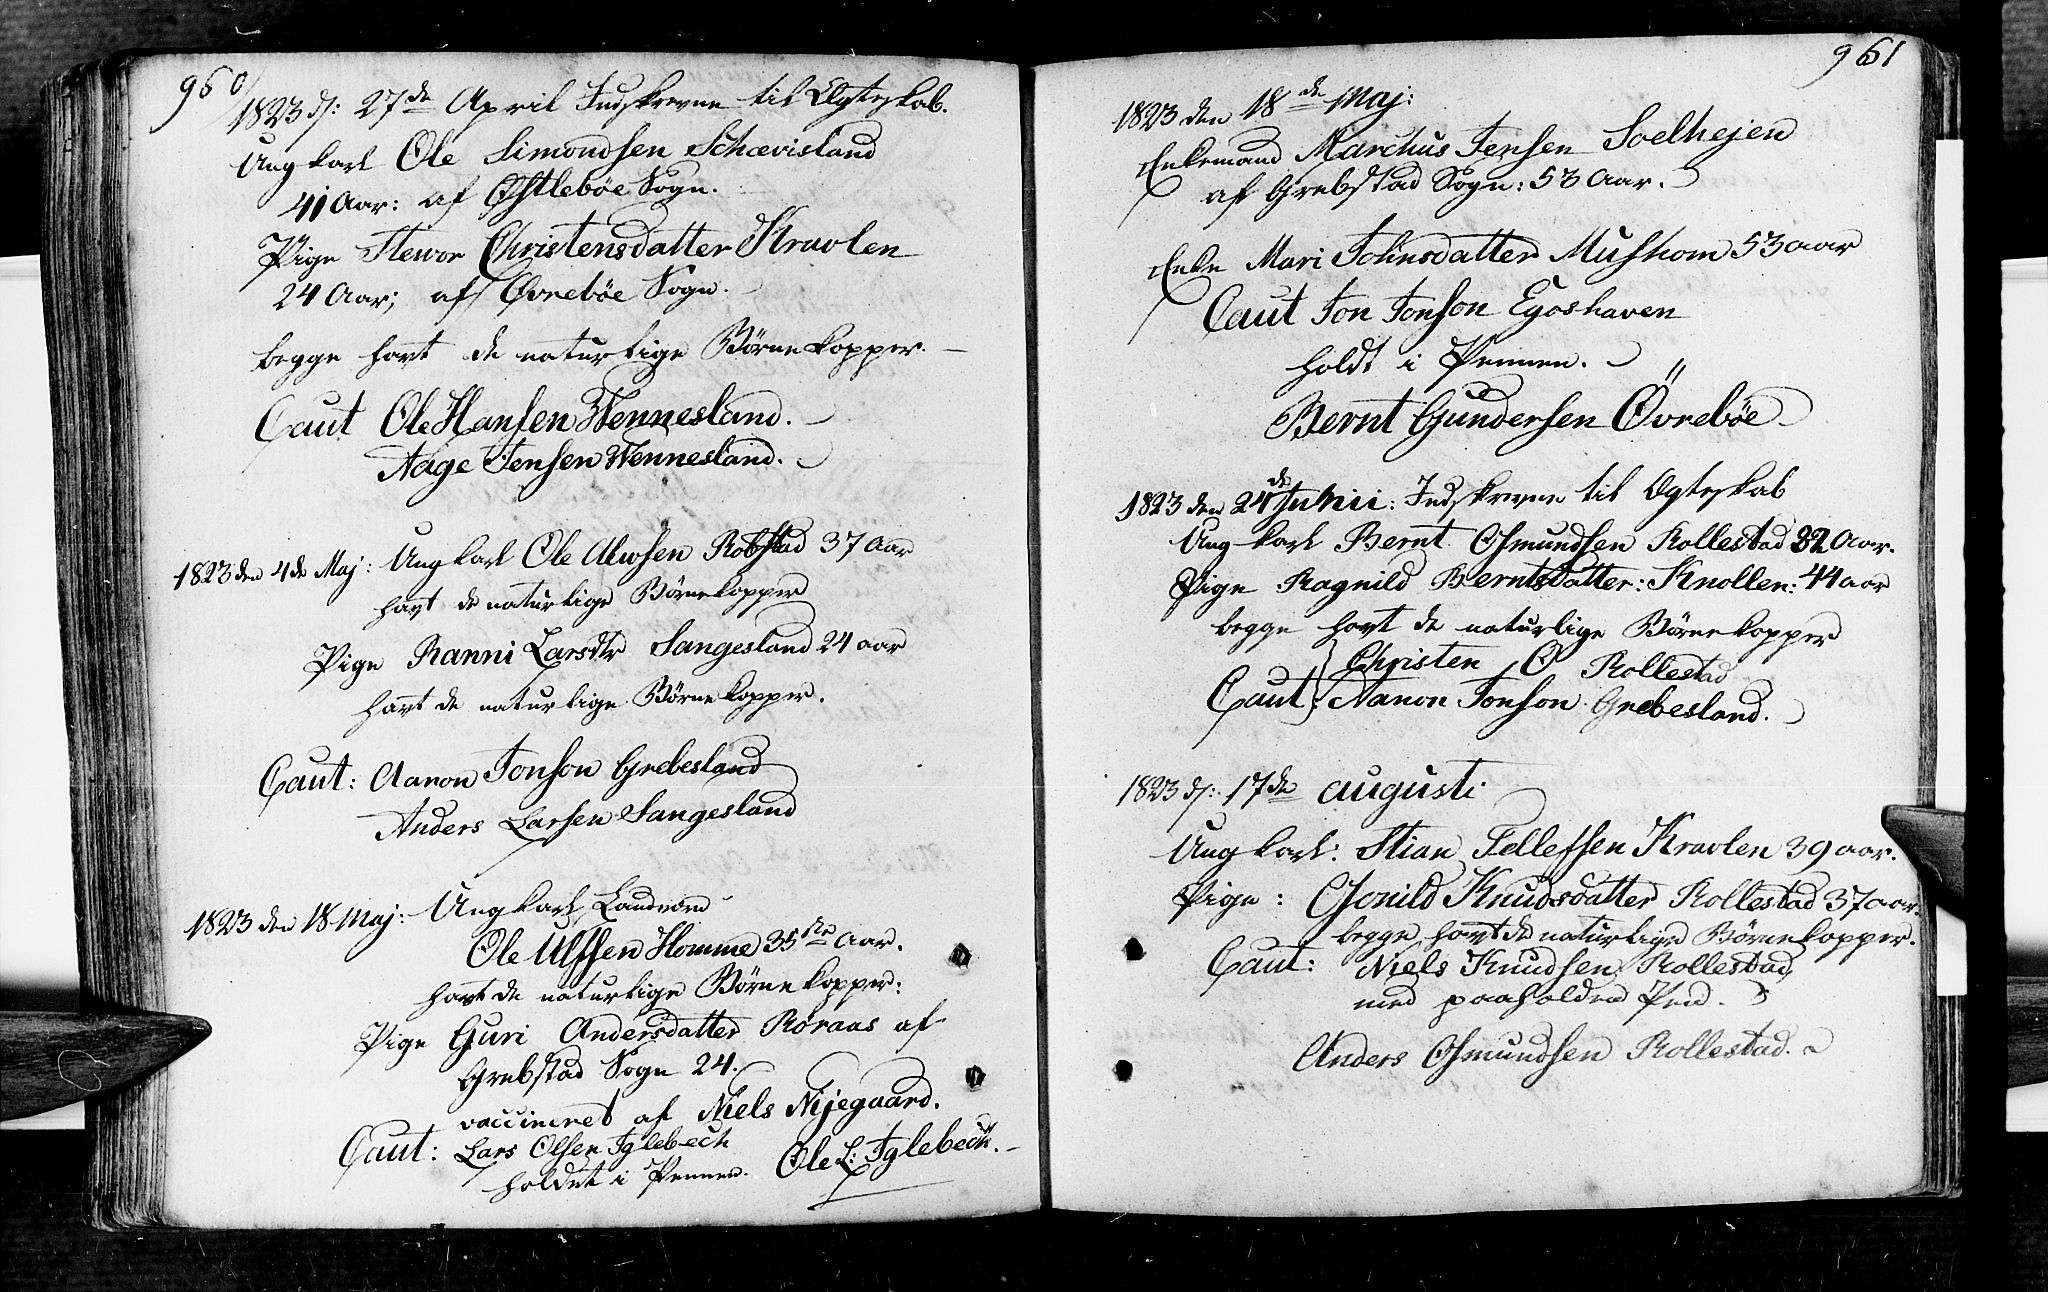 960
1823 d: 27de April Indskrevne til Ægteskab.
Ungkarl Ole Simondsen Schævisland
41 Aar: af Øſtlebøe Sogn.
Pige Stewor Christensdatter Kravlen
24 Aar; af Øvrebøe Sogn.
begge havt de naturlige Børnekopper.
Caut Ole Hanſen Wennesland.
Aage Jenſen Wennesland.
1823 den 4de Maj: Ungkarl Ole Alwſen Robstad 37 Aar
havt de naturlige Børnekopper
Pige Ranni Larsdtr Sangesland 24 aar
havt de naturlige Børnekopper.
Caut: Aaron Jonſon Grebesland
Anders Larſen Sangesland
1823 den 18 Maj: Ungkarl Landværn
Ole Ulfſen Homme 35 Aar.
havt de naturlige Børnekopper:
Pige Guri Andersdatter Røraas af
Grebstad Sogn 24.
vaccineret af Niels Nijegaard.
Caut: Lars Olſen Iglebech
holdet i Pennen. Ole L: Iglebech.
961
1823 den 18de Maj:
Enkemand Marchus Jenſen Soelhejen
af Grebstad Sogn: 53 Aar.
Enke Mari Johnsdatter Muſhom 53 aar
Caut Jon Jonſon Egoshaven
holdt i Pennen.
Bernt Gunderſen Övrebøe
1823 den 24de Junii: Indskrevne til Ægteskab
Ungkarl Bernt Oſmundſen Rollestad 32 Aar.
Pige Ragnild Berntsdatter: Knollen: 44 aar
begge havt de naturlige Børnekopper
Christen O Rollestad
Caut: Aanon Jonſon Grebesland.
1823 d: 17de augusti
Ungkarl: Stian Tellefſen Kravlen 39 aar.
Pige: Gonild Knudsdatter Rollestad 37 aar.
begge havt de naturlige Børnekopper.
Caut: Niels Knudſen Rollestad
med paaholden Pen.
Anders Oſmundſen Rollestad.